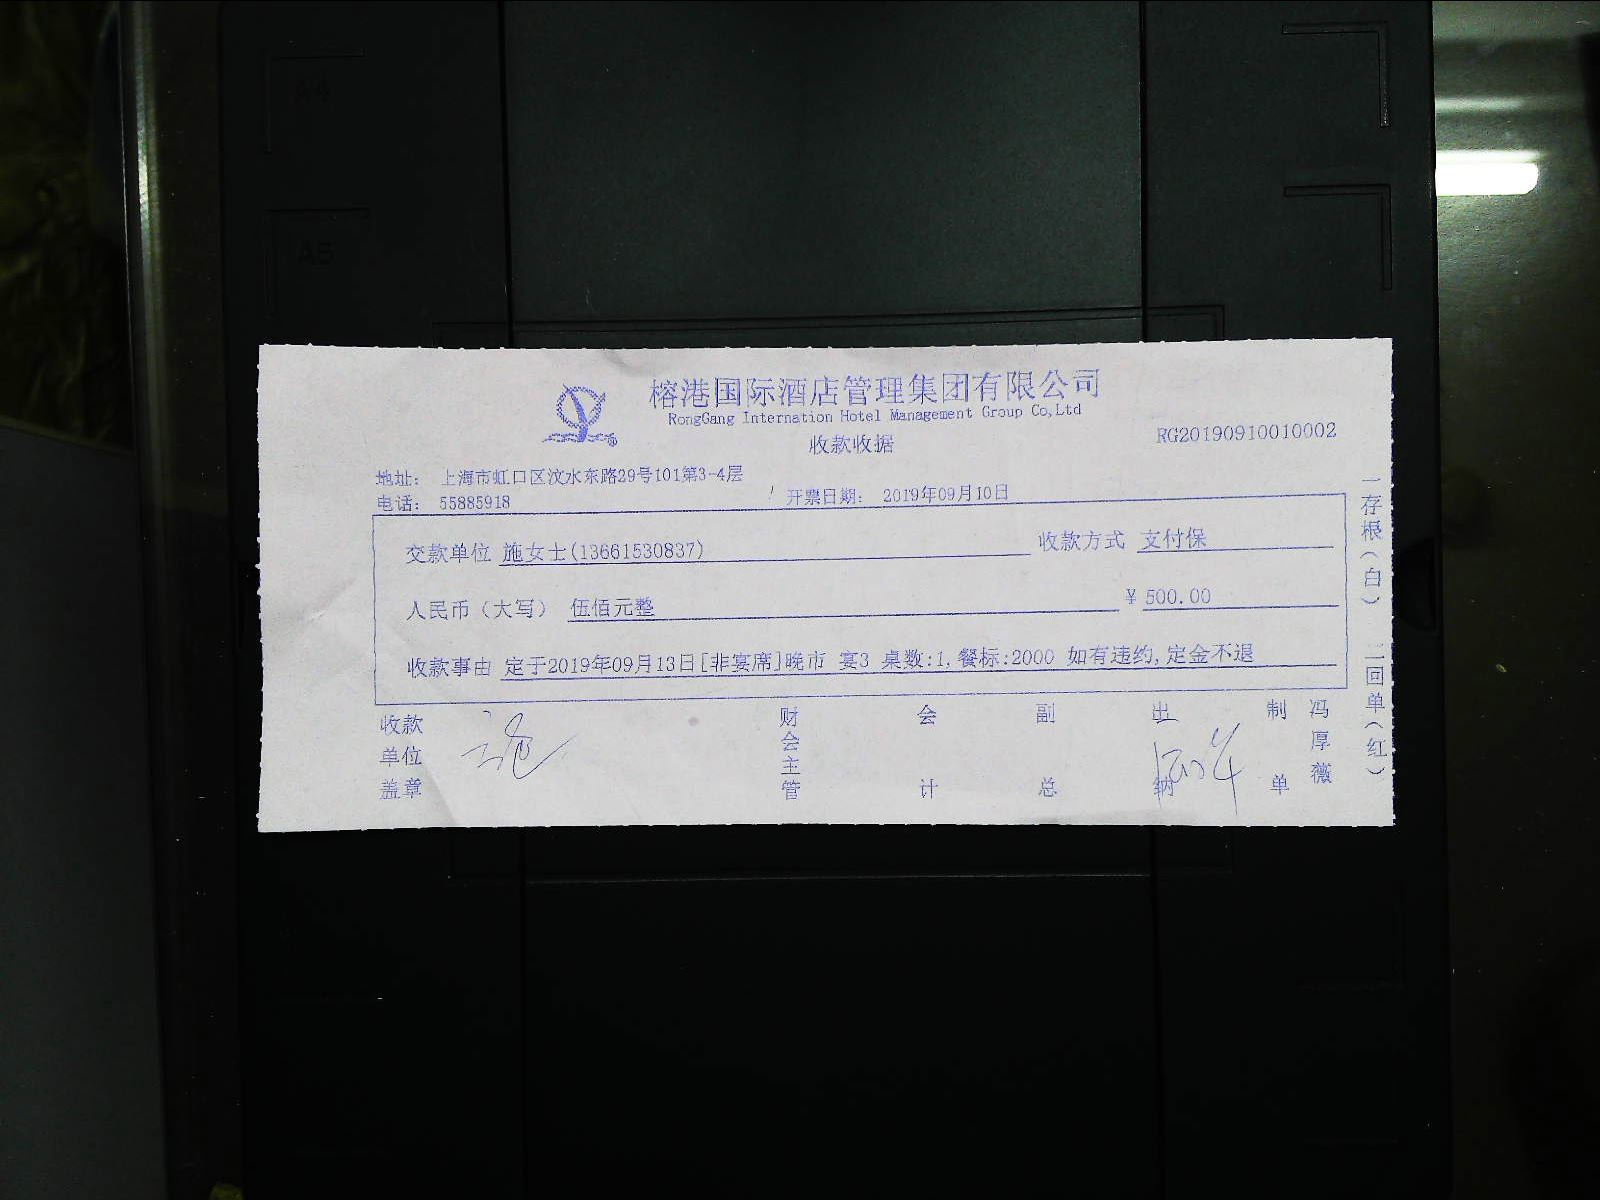 A4
A5
榕港国际酒店管理集团有限公司
RongGang Internation Hotel Management Group Co,Ltd
收款收据
RG20190910010002
地址： 上海市虹口区汶水东路29号101第3-4层
电话： 55885918
开票日期： 2019年09月10日
交款单位 施女士(13661530837)
收款方式 支付保
人民币（大写） 伍佰元整
￥500.00
收款事由 定于2019年09月13日[非宴席]晚市 宴3 桌数:1,餐标:2000 如有违约,定金不退
收款单位盖章
财会主管
会计
副总
出纳
制单
冯厚薇
一存根（白） 二回单（红）